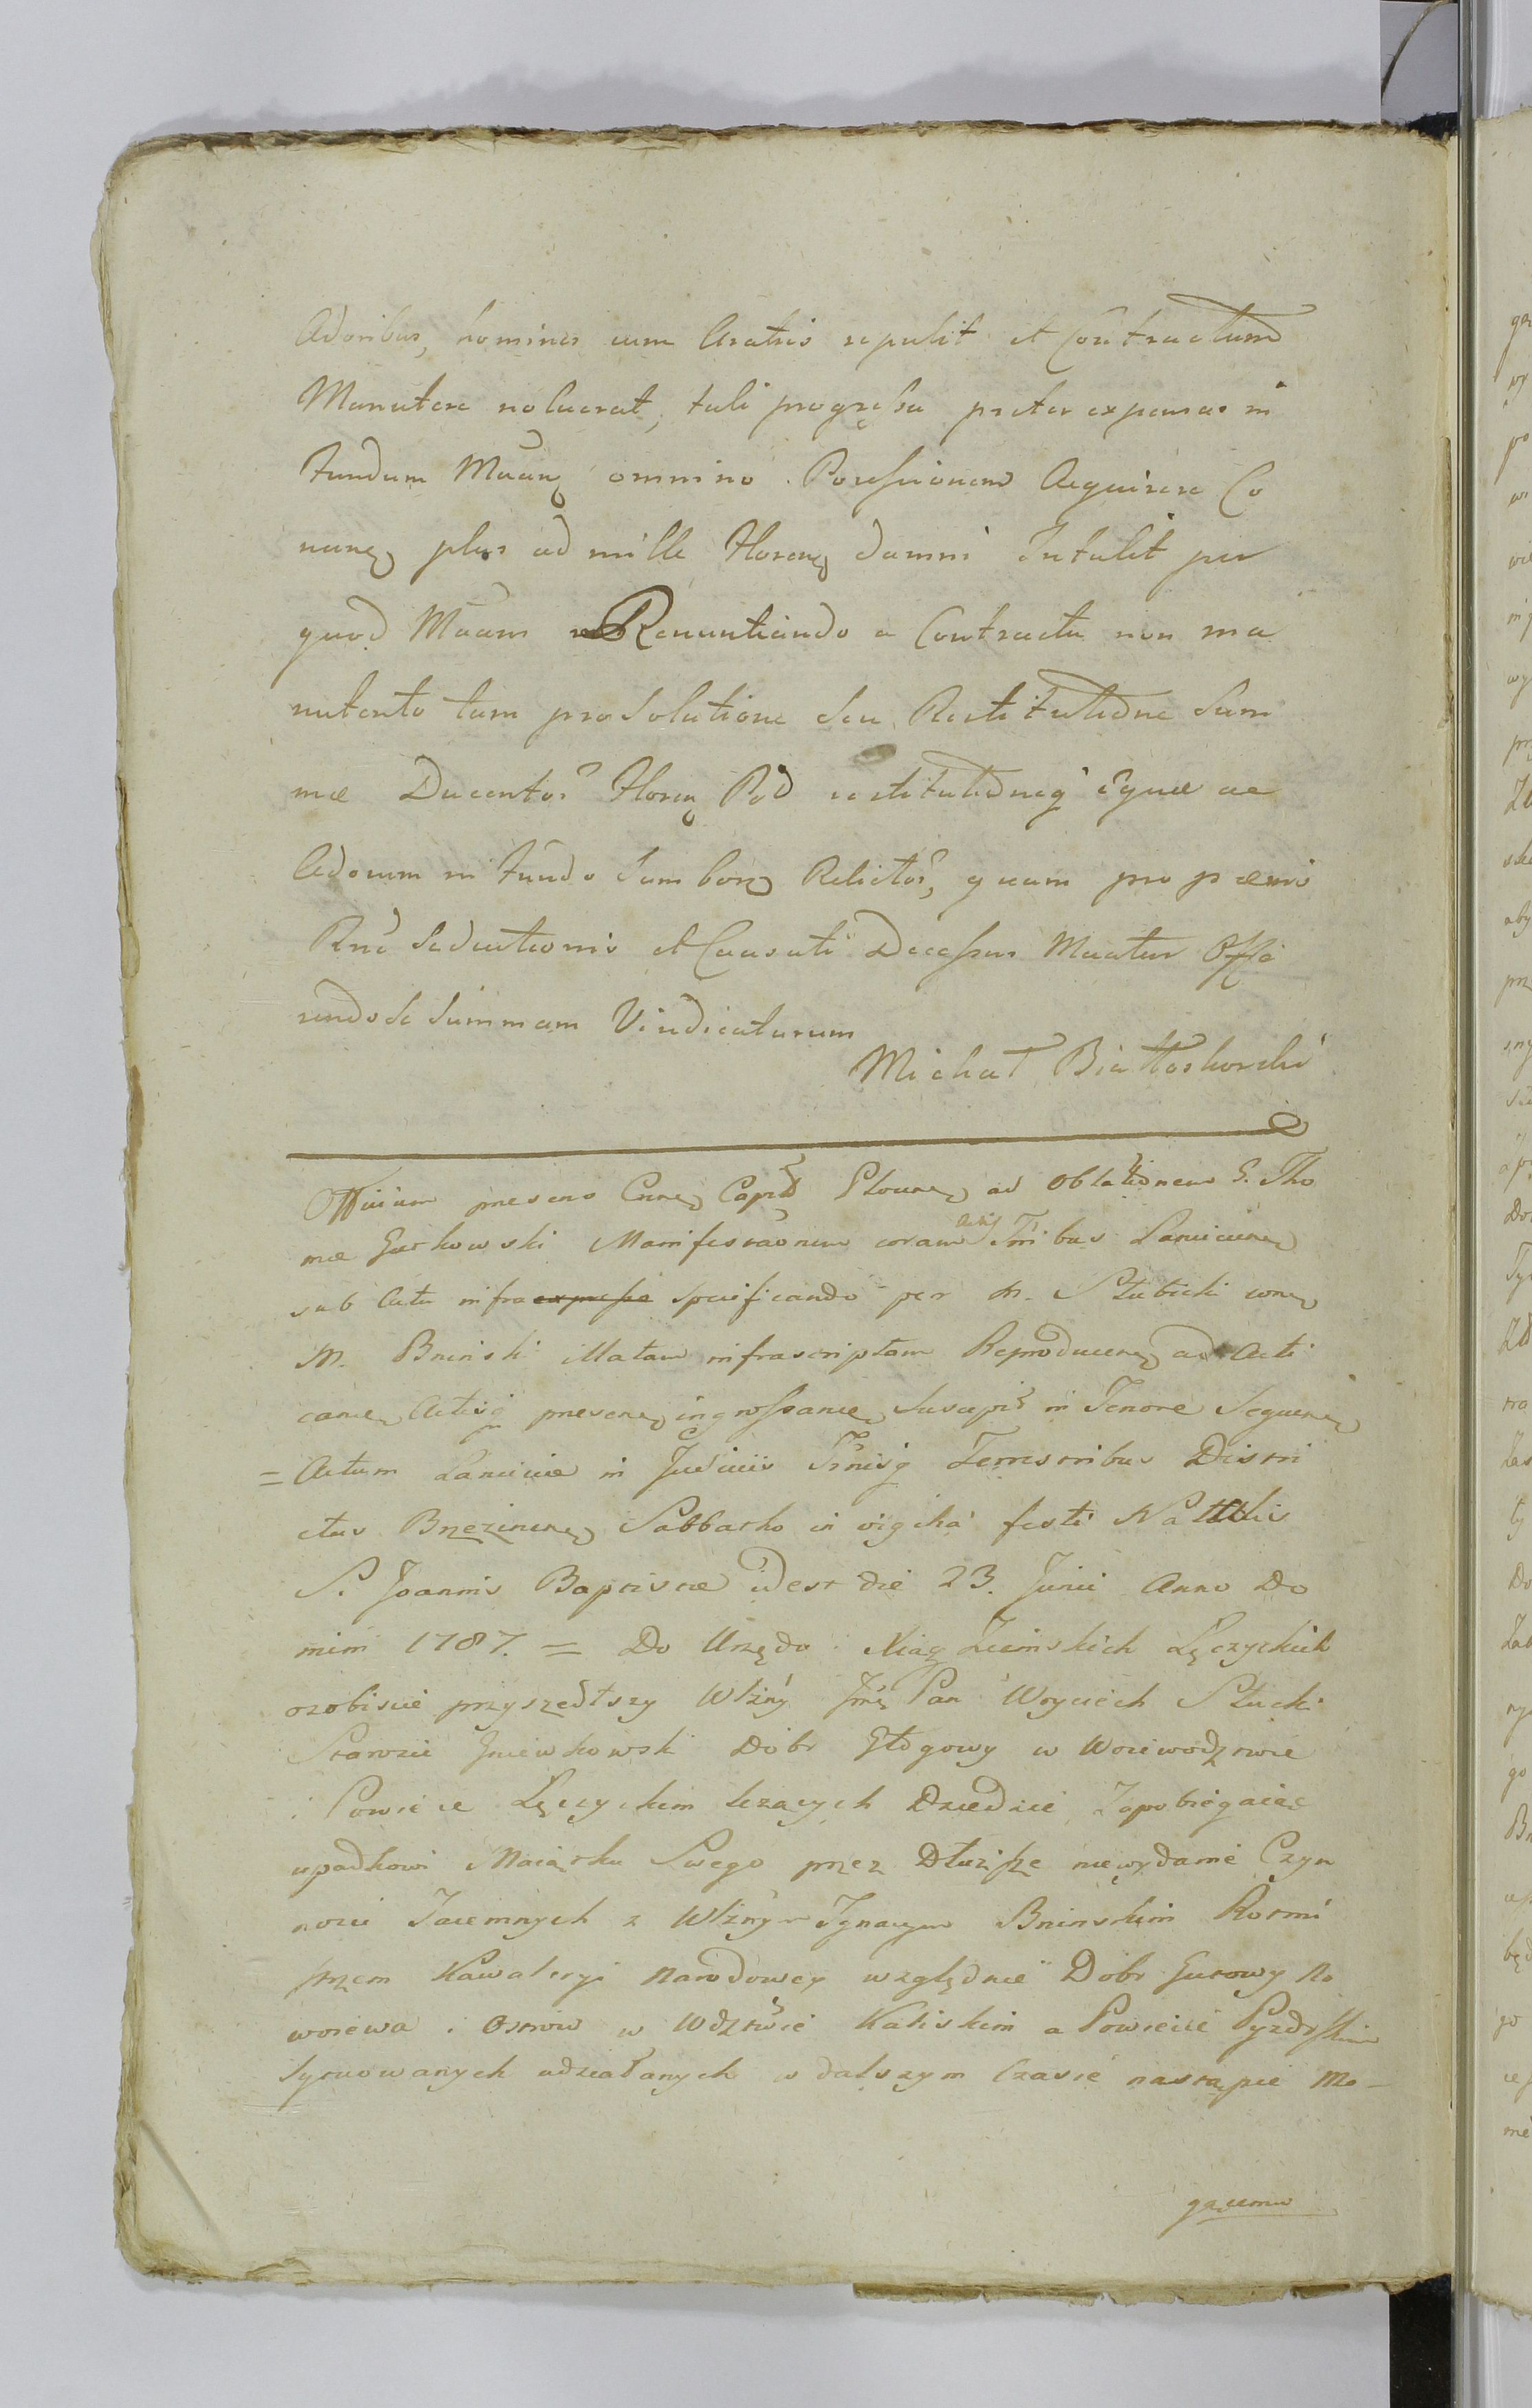 Adonibus, homines cum Aratris repulit et Contractum
Manutere noluerat, tali progressu preter expensas in
fundum Mãanę omnino Possessionem Acquirere Co
nanę plus ad mille florenę damni Intulit per
quod Mãam Renuntiando a Contractu non ma
nutento tum pro Solutione seu Restitutione Sum
mæ Ducentor florenę Pod restitutionęq
Adorum in fundo Relictor, quam pro pæmis
Rnê Seductionis et Causati Decessus Muatur Offe
rendo se Summam Vindicaturum
Michał Białłoskorski
Officium presens Cnnę Capt Plocenę ad Oblationem G. Tho
mæ Gurkowski Manifestãonem coram Actis Tribus Lancicienę
sub Actu infra expresse specificando per M. Słubicki conę
M. Bninski illatam infrascriptam Reproducenę ad Acti
canę Actisq presenę ingrossanę Suscepit in Tenore Sequenę
= Actum Lanciciæ in Judiciis Trnisq Terrestribus Distri
ctus Brzezinenę Sabbatho in vigilia festi Natalis
S. Joannis Baptistæ idest die 23. Junii Anno Do
mini 1787. = Do Urzędu Xiąg Ziemskich Łęczyckich
osobiscie przyszedłszy Wlżny Jmę Pan Woyciech Słucki
Starosta Gniewkowski Dóbr Głogowy w Woiewodztwie
i Powiecie Łęczyckim leżących Dziedzic Zapobiegaiąc
upadkowi Maiątku Swego przez Dłuższe niewydanie Czyn
nosci Taiemnych z Wlżnym Jgnacym Bninskim Rotmi
strzem Kawaleryi Narodowey względnie Dobr Gutowy No
woiewa i Ostrow w Wdztwie Kaliskim a Powiecie Pyzdrskim
sytuowanych udziałanych w dalszym Czasie nastąpic Mo-
gącemu